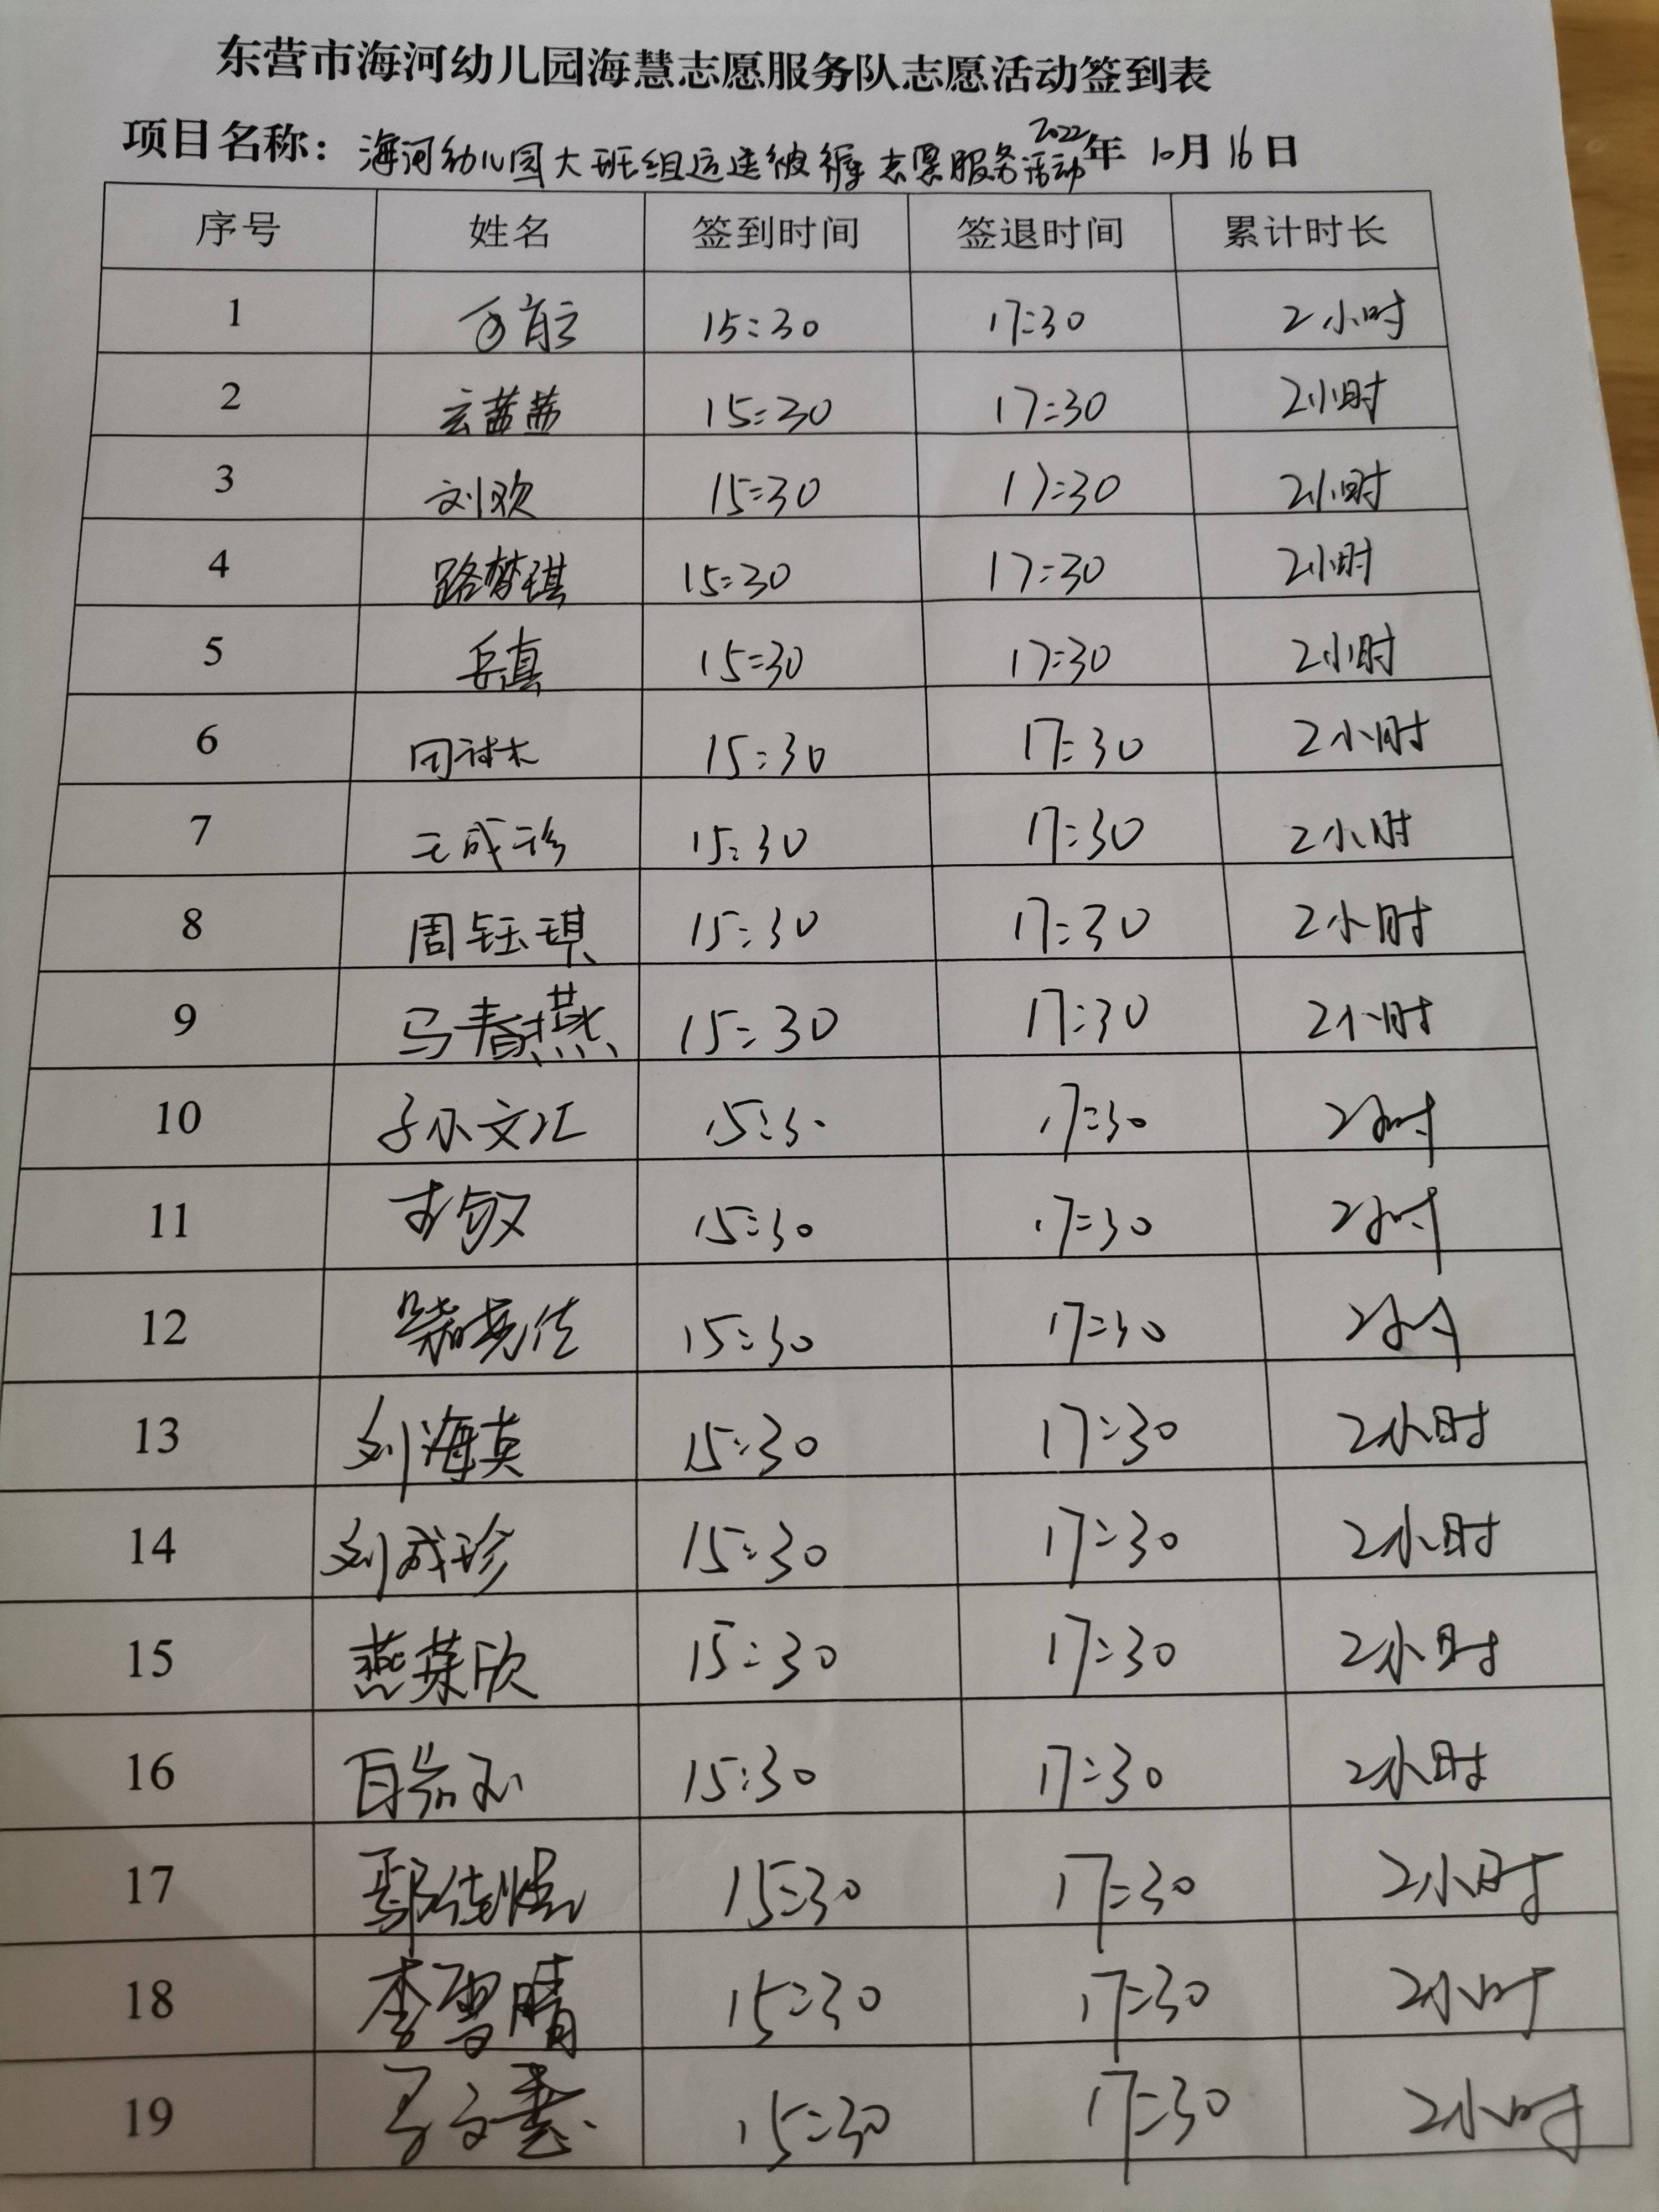 东营市海河幼儿园海慧志愿服务队志愿活动签到表
项目名称：海河幼儿园大班组运送被褥志愿服务活动 2022年10月16日
序号 姓名 签到时间 签退时间 累计时长
1 15:30 17:30 2小时
2 玄茜茜 15:30 17:30 2小时
3 刘欢 15:30 17:30 2小时
4 路梦琪 15:30 17:30 2小时
5 岳真 15:30 17:30 2小时
6 15:30 17:30 2小时
7 王成珍 15:30 17:30 2小时
8 周钰琪 15:30 17:30 2小时
9 马春燕 15:30 17:30 2小时
10 孙文汇 15:30 17:30 2小时
11 15:30 17:30 2小时
12 15:30 17:30 2小时
13 刘海英 15:30 17:30 2小时
14 刘成珍 15:30 17:30 2小时
15 燕荣欣 15:30 17:30 2小时
16 15:30 17:30 2小时
17 15:30 17:30 2小时
18 李雪晴 15:30 17:30 2小时
19 15:30 17:30 2小时